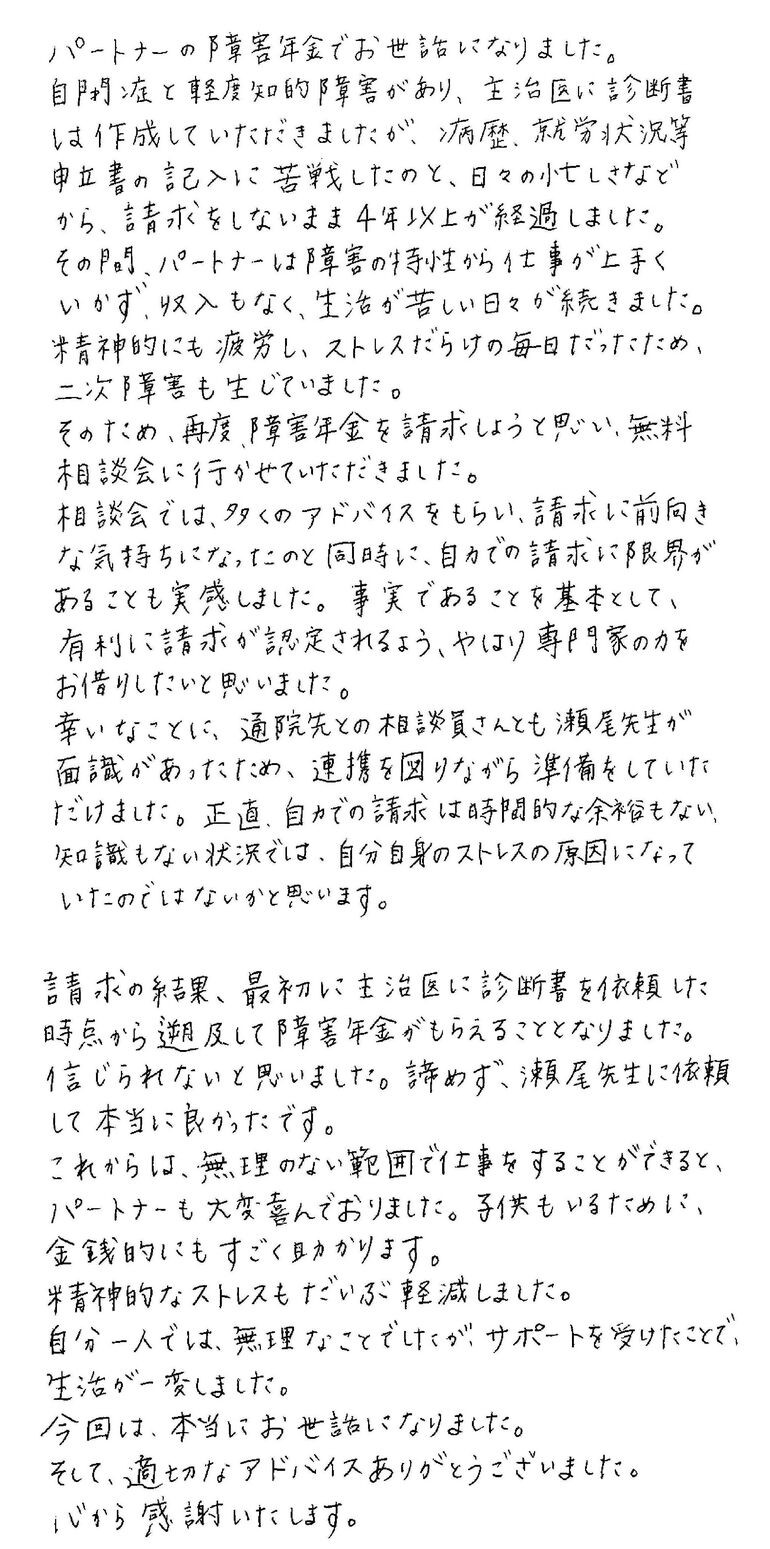 パートナーの障害年金でお世話になりました。
自閉症と軽度知的障害があり、主治医に診断書
は作成していただきましたが、病歴、就労状況等
申立書の記入に苦戦したのと、日々の忙しさなど
から、請求をしないまま4年以上が経過しました。
その間、パートナーは障害の特性から仕事が上手く
いかず、収入もなく、生活が苦しい日々が続きました。
精神的にも疲労し、ストレスだらけの毎日だったため、
二次障害も生じていました。
そのため、再度、障害年金を請求しようと思い、無料
相談会に行かせていただきました。
相談会では、多くのアドバイスをもらい、請求に前向き
な気持ちになったのと同時に、自力での請求に限界が
あることも実感しました。事実であることを基本として、
有利に請求が認定されるよう、やはり専門家の力を
お借りしたいと思いました。
幸いなことに、通院先との相談員さんとも瀬尾先生が
面識があったため、連携を図りながら準備をしていた
だけました。正直、自力での請求は時間的な余裕もない、
知識もない状況では、自分自身のストレスの原因になって
いたのではないかと思います。
請求の結果、最初に主治医に診断書を依頼した
時点から遡及して障害年金がもらえることとなりました。
信じられないと思いました。諦めず、瀬尾先生に依頼
して本当に良かったです。
これからは、無理のない範囲で仕事をすることができると、
パートナーも大変喜んでおりました。子供もいるために、
金銭的にもすごく助かります。
精神的なストレスもだいぶ軽減しました。
自分一人では、無理なことでしたが、サポートを受けたことで、
生活が一変しました。
今回は、本当にお世話になりました。
そして、適切なアドバイスありがとうございました。
心から感謝いたします。